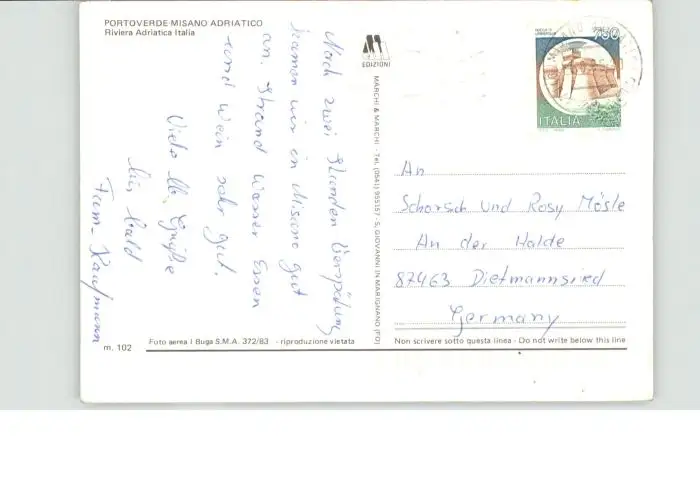 PORTOVERDE-MISANO ADRIATICO
Riviera Adriatica Italia
Nach zwei Stunden Verspätung
kamen wir in Misano gut
an. Strand Wasser Essen
und Wein sehr gut.
Viele lb. Grüße
bis bald
Fam. Kaufmann
m. 102
Foto aerea I Buga S.M.A. 372/83 - riproduzione vietata
EDIZIONI
MARCHI & MARCHI - Tel. (0541) 955157 - S. GIOVANNI IN MARIGNANO (FO)
750
ITALIA
An
Schorsch und Rosy Mösle
An der Halde
87463 Dietmannsried
Germany
Non scrivere sotto questa linea - Do not write below this line